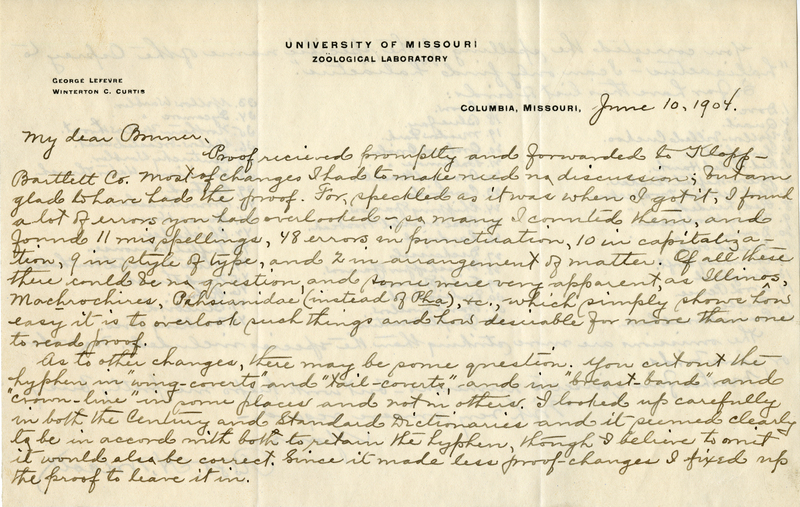 UNIVERSITY OF MISSOURI
ZOÖLOGICAL LABORATORY
GEORGE LEFEVRE
WINTERTON C. CURTIS
COLUMBIA, MISSOURI, June 10, 1904.
My dear Bruner,
Proof recieved promptly and forwarded to Klopp-
Bartlett Co. Most of changes I had to make need no discussion; but am
glad to have had the proof. For, speckled as it was when I got it, I found
a lot of errors you had overlooked – so many I counted them, and
found 11 misspellings, 48 errors in punctuation, 10 in capitaliza
tion, 9 in style of type, and 2 in arrangement of matter. Of all these
there could be no question, and some were very apparent, as Illinos,
Machrochires, Pahsianidae (instead of Pha), &c., which simply shows how
easy it is to overlook such things and how desirable for more than one
to read proof.
As to other changes, there may be some question. You cut out the
hyphen in "wing-coverts" and "tail-coverts" and in "breast-band" and
"crown-line" in some places and not in others. I looked up carefully
in both the Century and Standard Dictionaries and it seemed clearly
to be in accord with both to retain the hyphen, though I believe to omit
it would also be correct. Since it made less proof-changes I fixed up
the proof to leave it in.